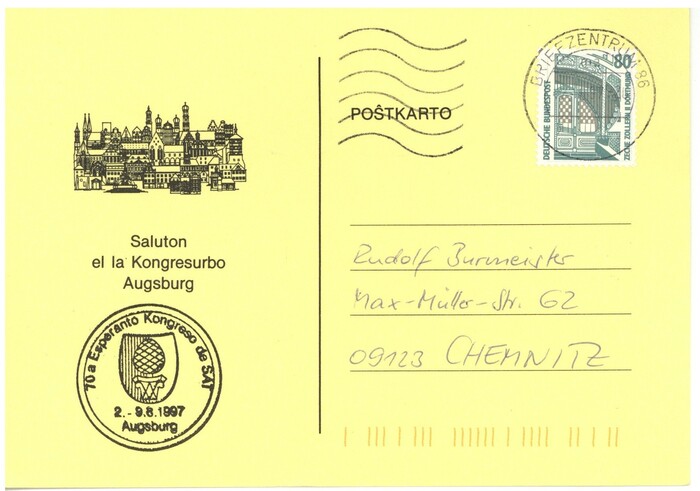 POŜTKARTO
BRIEFZENTRUM 86
80
DEUTSCHE BUNDESPOST
ZECHE ZOLLERN II DORTMUND
Saluton
el la Kongresurbo
Augsburg
70a Esperanto Kongreso de SAT
2.-9.8.1997
Augsburg
Rudolf Burmeister
Max-Müller-Str. 62
09123 CHEMNITZ